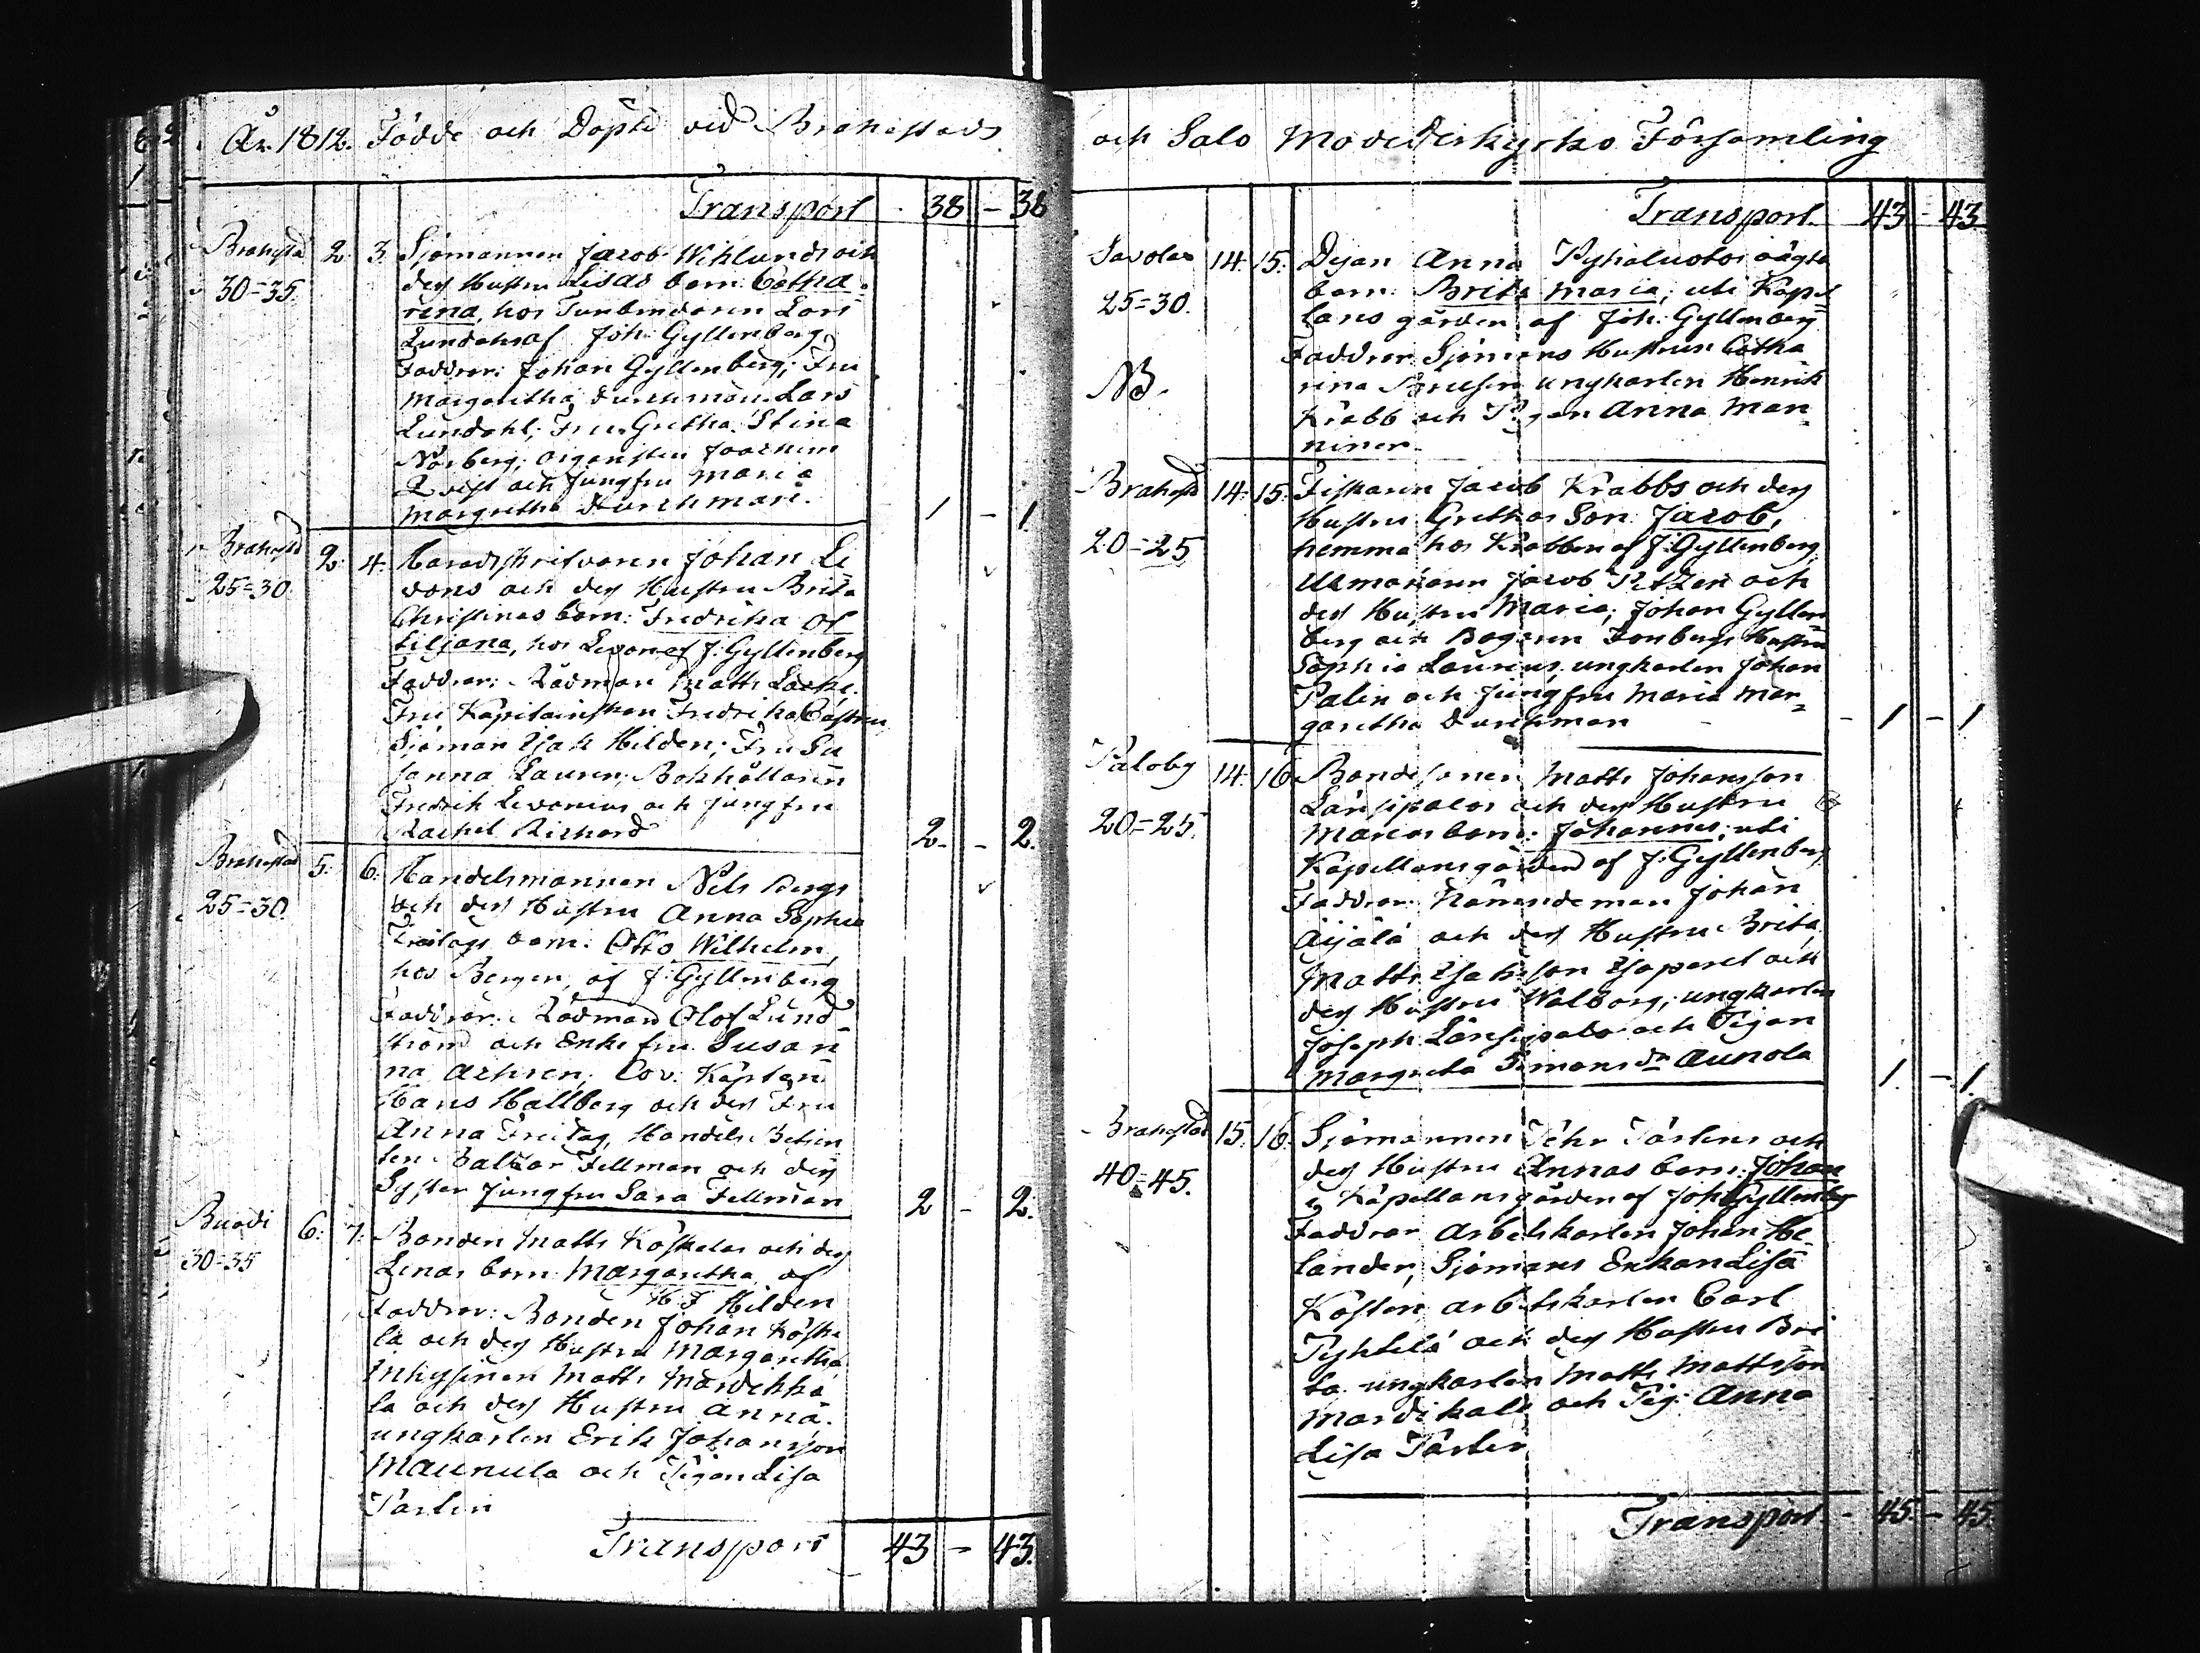 År 1812. Födde och Döpte vid Brahestads
Transport 38 - 38
Brahestad 2. 3. Sjömannen Jacob Wiklunds och
30=35. dess Hustru Lisas barn: Catha=
rina, hos Tunbindaren Lars
Lundahl af Joh: Gyllenberg
Faddrar: Johan Gyllenberg; Fru
Margaretha Durchman; Lars
Lundahl; Fru Gretha Stina
Norberg; Organisten Joachim
Qvist och Jungfru Maria
Margretha Durchman. 1 - 1
Brahestad 2. 4. Häradsskrifvaren Johan Le
25=30. vons och dess Hustru Brita
Christinas barn: Fredrika Ot
tiljana, hos Levon af J: Gyllenberg
Faddrar: Rådman Matts
Fru Kapitainskan Fredrika Castren
Sjöman Isak Hilden; Fru Su
sanna Lauren; Bokhållaren
Fredrik Levonius och Jungfru
Rachel Richard 2. - 2.
Brahestad 5. 6. Handelsmannen Nils Bergs
25=30. och dess Hustru Anna Sophia
Freitags barn: Otto Wilhelm,
hos Bergen, af J: Gyllenberg
Faddrar: Rådman Olof Lund
ström och Enke fru Susan
na Cov: Kapten
Hans Hallberg och dess Fru
Anna Freitag, Handels Betjen
ten Baltzar Fellman och dess
Syster Jungfru Sara Fellman 2 - 2.
6. 7. Bonden Matts Koskelas och dess
30=35 Lenas barn Margaretha af
H J Hilden
Faddrar: Bonden Johan Koske
la och dess Hustru Margaretha
Inhysingen Matts
la och dess Hustru Anna.
ungkarlen Erik Johansson
Maunula och Pigan Lisa
Parlin
Transport 43 - 43.
och Salo Modersrkyrko Församling
Transport 43 - 43.
Savolax 14. 15. Pigan Anna Pyhäluotos oägta
25=30. barn: Brita Maria; uti Kapel
lans gården af Joh: Gyllenberg
Faddrar Sjömans Hustrun Catha
NB. rina ungkarlen Henrik
Krabb och Pigan Anna Man=
ninen.
Brahestad 14. 15. Fiskaren Jacob Krabbs och dess
20=25 Hustru Grethas Son Jacob,
hemma hos Krabben af J: Gyllenberg
Jacob och
dess Hustru Maria; Johan Gyllen
berg och Hustru
Sophia Laurins; ungkarlen Johan
Palin och Jungfru Maria Mar=
garetha Durchman - 1 - 1
Paloby 14. 16. Bondesonen Matts Johansson
20=25. Länsipalos och dess Hustru
Marias barn: Johannes; uti
Kapellansgården af J: Gyllenberg
Faddrar: Nämndeman Johan
Äijälä och dess Hustru Brita,
Matts Isaksson och
dess Hustru Walborg; ungkarlen
Joseph Länsipalo och Pigan
Margreta Simonsdr Aunola 1. - 1.
Brahestad 15. 16. Sjömannen Pehr Parlins och
40=45. dess Hustru Annas barn: Johan
i Kapellansgården af Joh: Gyllenberg
Faddrar Arbetskarlen Johan He
lander, Sjömans Enkan Lisa
Kosten, arbetskarlen Carl
Pyhtilä och dess Hustru Bri
ta. ungkarlen Matts Mattsson
och Pig: Anna
Lisa Parlin
Transport - 45. - 45.